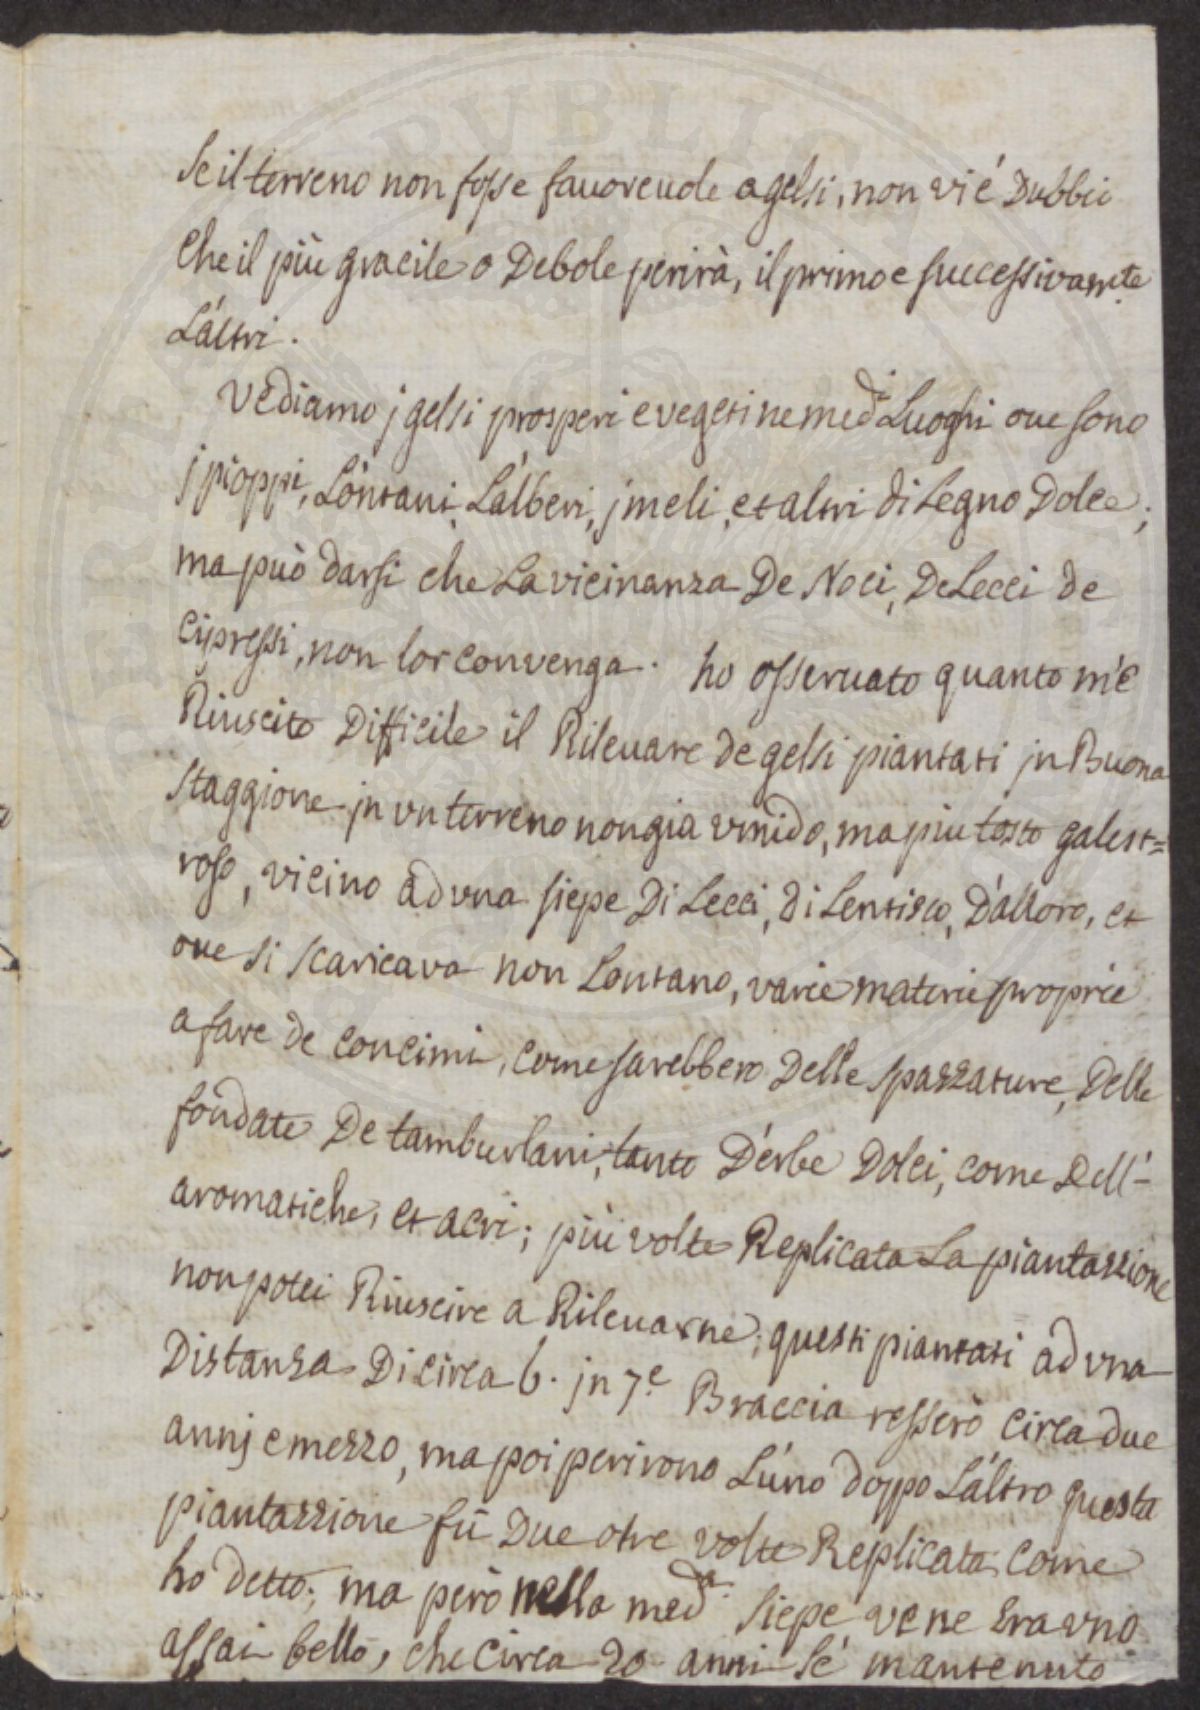 Se il terreno non fosse fauoreuole a gelsi, non vi é Dubbio
Che il più gracile o Debole perirà, il primo e successivam.te
L'altri.
Vediamo j gelsi prosperi e vegeti ne med.i Luoghi oue sono
j pioppi, L'ontani, L'alberi, j meli, et altri di Legno Dolce;
ma può darsi che La vicinanza De Noci, De Lecci de
Cipressi, non lor convenga. ho osseruato quanto m'é
Riuscito Difficile il Rileuare de gelsi piantati jn Buona
staggione jn vn terreno non gia vmido, ma piu tosto galest=
roso, vicino ad vna siepe Di Lecci, di Lentisco, D'alloro, et
oue si scaricava non Lontano, varie materie proprie
a fare de concimi, come sarebbero Delle spazzature, Delle
fondate De tamburlani, tanto D'erbe Dolci, come Dell'
aromatiche, et acri; più volte Replicata La piantazzione
non potei Riuscire a Rileuarne; questi piantati ad vna
Distanza Di circa 6. jn 7.e Braccia ressero circa due
annj e mezzo, ma poi perirono L'uno doppo L'altro questa
piantazzione fù Due o tre volte Replicata come
ho detto; ma però nella med.a siepe ve ne era vno
assai bello, che circa 20 anni s'é mantenuto
PERUBLIC